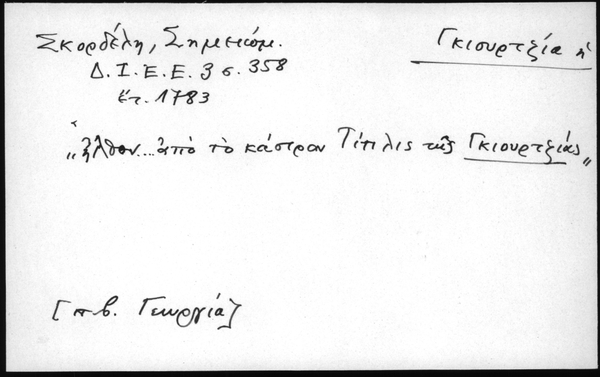 Σκορδέλη, Σημειώμ.
Γκιουρτζία ἡ
Δ. Ι. Ε. Ε. 3 σ. 358
ἔτ. 1783
"ἦλθον... ἀπὸ τὸ κάστρον Τίπλις τῆς Γκιουρτζίας"
[π β. Γεωργία]